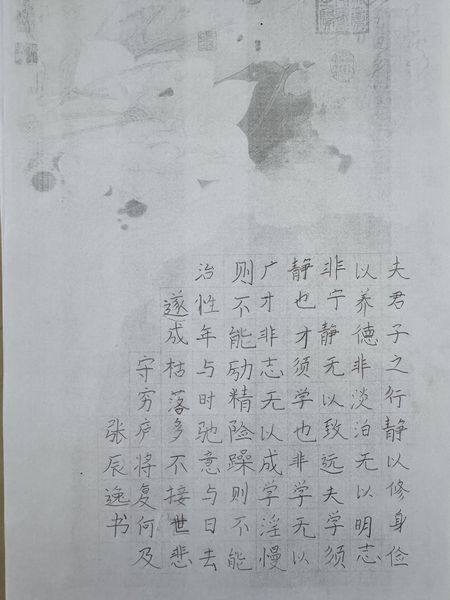 夫君子之行静以修身俭
以养德非淡泊无以明志
非宁静无以致远夫学须
静也才须学也非学无以
广才非志无以成学淫慢
则不能励精险躁则不能
治性年与时驰意与日去
遂成枯落多不接世悲
守穷庐将复何及
张辰逸书